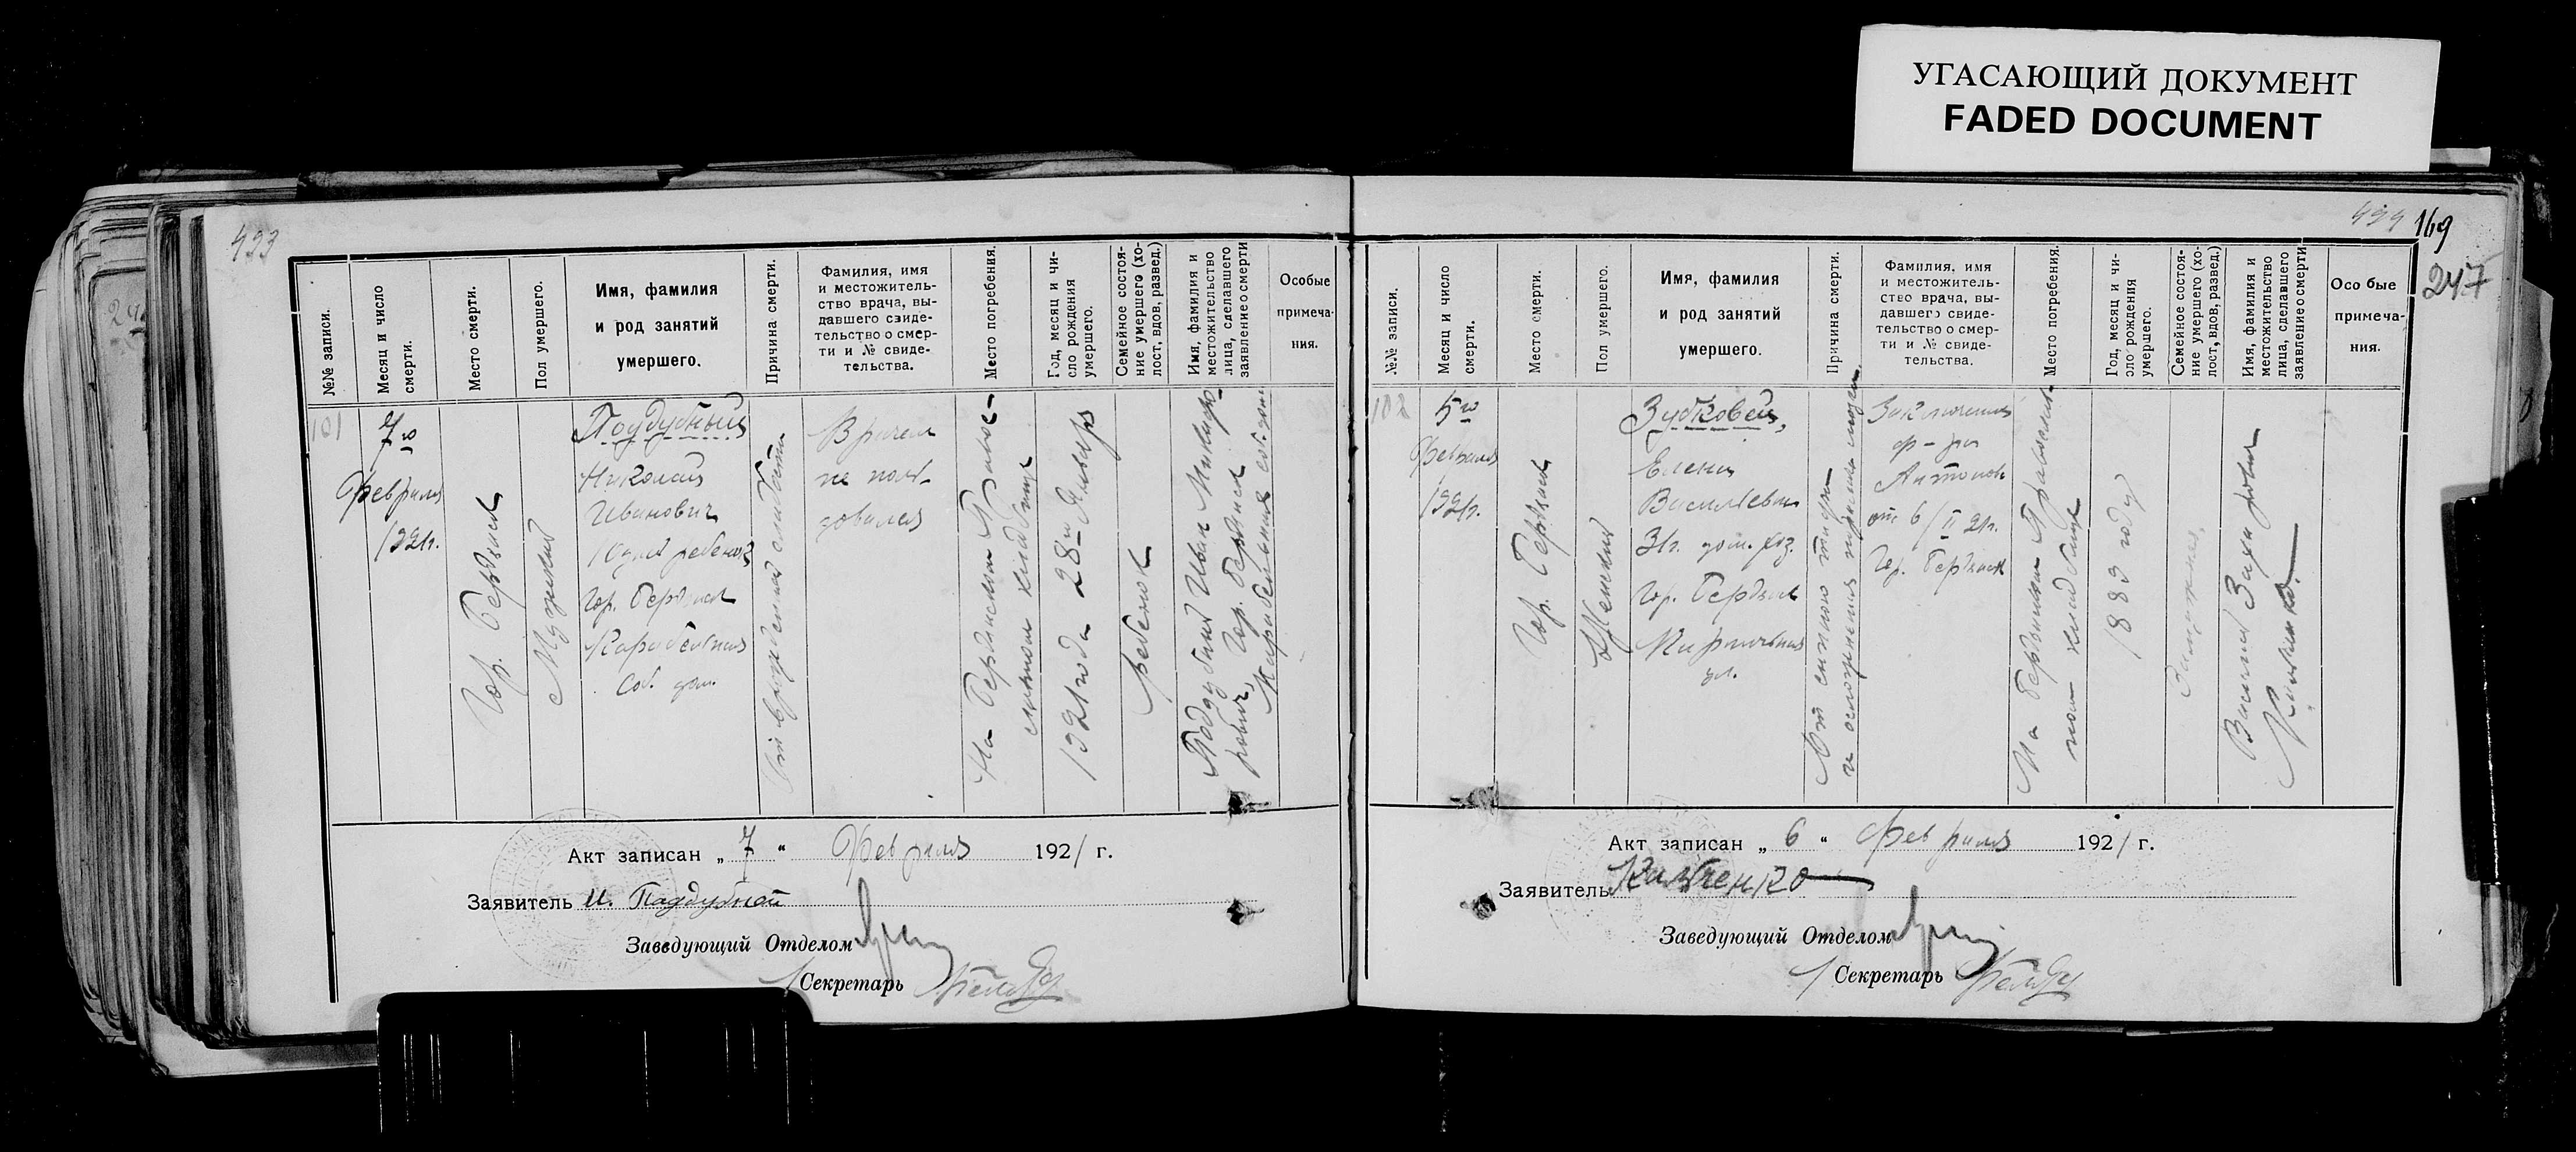 УГАСАЮЩИЙ ДОКУМЕНТ
FADED DOCUMENT
493
№№ записи.
Месяц и число
смерти.
Место смерти.
Пол умершего.
Имя, фамилия
и род занятий
умершего.
Причина смерти.
Фамилия, имя
и местожитель-
ство врача, вы-
давшего свиде-
тельство о смер-
ти и № свиде-
тельства.
Место погребения.
Год, месяц и чи-
сло рождения
умершего.
Семейное состоя-
ние умершего (хо-
лост, вдов, развед.)
Имя, фамилия и
местожительство
лица, сделавшего
заявление о смерти
Особые
примеча-
ния.
101
7го
Февраля
1921г.
Гор. Бердянск
Мужской
Поддубный
Николай
Иванович
10 дней ребенок
Гор. Бердянск
Соб. дом.
От врожденной слабости
Врачем
не поль-
зовался
На Бердянском Правос-
лавном кладбище
1921 года 28го Января
ребенок
Поддубный Иван
Гор. Бердянск
соб. дом
Акт записан „ 7 “ Февраля 1921 г.
Заявитель И. Паддубной
Заведующий Отделом
Секретарь
494 169
247
№№ записи.
Месяц и число
смерти.
Место смерти.
Пол умершего.
Имя, фамилия
и род занятий
умершего.
Причина смерти.
Фамилия, имя
и местожитель-
ство врача, вы-
давшего свиде-
тельство о смер-
ти и № свиде-
тельства.
Место погребения.
Год, месяц и чи-
сло рождения
умершего.
Семейное состоя-
ние умершего (хо-
лост, вдов, развед.)
Имя, фамилия и
местожительство
лица, сделавшего
заявление о смерти
Особые
примеча-
ния.
102
5го
Февраля
1921г.
Гор. Бердянск
Женский
Елена
Васильевна
31г. дом. хоз.
Гор. Бердянск
Кирпичная
ул.
От сыпного тифа
и осложнения
от 6/II 21г.
Гор. Бердянск
На Бердянском Православ-
ном кладбище
1889 году
Замужняя
Василий
Акт записан „ 6 “ Февраля 1921 г.
Заявитель
Заведующий Отделом
Секретарь